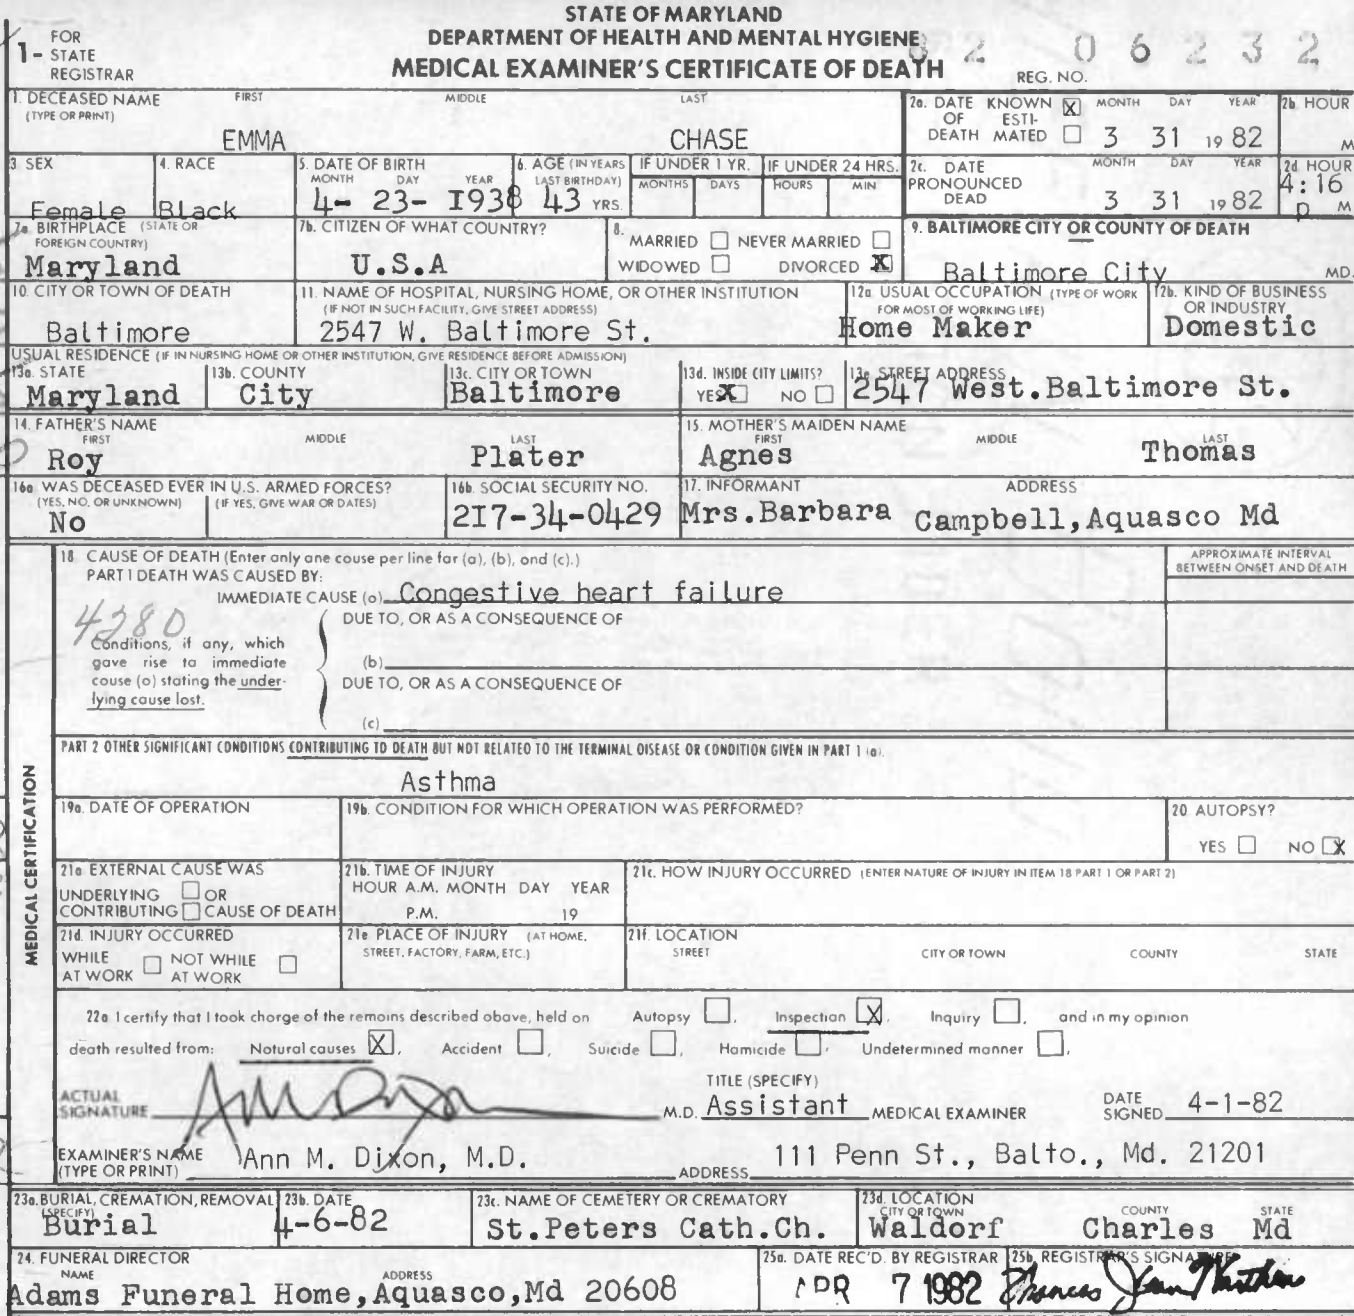 STATE OF MARYLAND
DEPARTMENT OF HEALTH AND MENTAL HYGIENE
MEDICAL EXAMINER'S CERTIFICATE OF DEATH
1- FOR STATE REGISTRAR
82 06232
REG. NO.
1. DECEASED NAME (TYPE OR PRINT) FIRST MIDDLE LAST
EMMA CHASE
2a. DATE OF DEATH KNOWN X ESTIMATED MONTH DAY YEAR
3 31 1982
2b. HOUR M
3. SEX
Female
4. RACE
Black
5. DATE OF BIRTH MONTH DAY YEAR
4- 23- I938
6. AGE (IN YEARS LAST BIRTHDAY)
43 YRS.
IF UNDER 1 YR. MONTHS DAYS
IF UNDER 24 HRS. HOURS MIN
2c. DATE PRONOUNCED DEAD MONTH DAY YEAR
3 31 1982
2d HOUR
4:16 p M
7a. BIRTHPLACE (STATE OR FOREIGN COUNTRY)
Maryland
7b. CITIZEN OF WHAT COUNTRY?
U.S.A
8. MARRIED NEVER MARRIED
WIDOWED DIVORCED X
9. BALTIMORE CITY OR COUNTY OF DEATH
Baltimore City MD.
10. CITY OR TOWN OF DEATH
Baltimore
11. NAME OF HOSPITAL, NURSING HOME, OR OTHER INSTITUTION
(IF NOT IN SUCH FACILITY, GIVE STREET ADDRESS)
2547 W. Baltimore St.
12a. USUAL OCCUPATION (TYPE OF WORK FOR MOST OF WORKING LIFE)
Home Maker
12b. KIND OF BUSINESS OR INDUSTRY
Domestic
USUAL RESIDENCE (IF IN NURSING HOME OR OTHER INSTITUTION, GIVE RESIDENCE BEFORE ADMISSION)
13a. STATE
Maryland
13b. COUNTY
City
13c. CITY OR TOWN
Baltimore
13d. INSIDE CITY LIMITS?
YES X NO
13e STREET ADDRESS
2547 West.Baltimore St.
14. FATHER'S NAME FIRST MIDDLE LAST
Roy Plater
15. MOTHER'S MAIDEN NAME FIRST MIDDLE LAST
Agnes Thomas
16a WAS DECEASED EVER IN U.S. ARMED FORCES?
(YES, NO, OR UNKNOWN) (IF YES, GIVE WAR OR DATES)
No
16b. SOCIAL SECURITY NO.
2I7-34-0429
17. INFORMANT ADDRESS
Mrs.Barbara Campbell,Aquasco Md
MEDICAL CERTIFICATION
18 CAUSE OF DEATH (Enter only one cause per line for (a), (b), and (c).)
PART I DEATH WAS CAUSED BY:
APPROXIMATE INTERVAL BETWEEN ONSET AND DEATH
IMMEDIATE CAUSE (a) Congestive heart failure
4280
DUE TO, OR AS A CONSEQUENCE OF
Conditions, if any, which gave rise to immediate cause (a) stating the underlying cause last.
(b)
DUE TO, OR AS A CONSEQUENCE OF
(c)
PART 2 OTHER SIGNIFICANT CONDITIONS CONTRIBUTING TO DEATH BUT NOT RELATED TO THE TERMINAL DISEASE OR CONDITION GIVEN IN PART 1 (a).
Asthma
19a. DATE OF OPERATION
19b. CONDITION FOR WHICH OPERATION WAS PERFORMED?
20 AUTOPSY?
YES NO X
21a EXTERNAL CAUSE WAS
UNDERLYING OR
CONTRIBUTING CAUSE OF DEATH
21b. TIME OF INJURY
HOUR A.M. MONTH DAY YEAR
P.M. 19
21c. HOW INJURY OCCURRED (ENTER NATURE OF INJURY IN ITEM 18 PART 1 OR PART 2)
21d. INJURY OCCURRED
WHILE AT WORK NOT WHILE AT WORK
21e PLACE OF INJURY (AT HOME, STREET, FACTORY, FARM, ETC.)
21f. LOCATION
STREET CITY OR TOWN COUNTY STATE
22a I certify that I took charge of the remains described above, held on Autopsy , Inspection X, Inquiry , and in my opinion
death resulted from: Natural causes X, Accident , Suicide , Homicide , Undetermined manner ,
ACTUAL SIGNATURE M.D.
TITLE (SPECIFY)
Assistant MEDICAL EXAMINER
DATE SIGNED 4-1-82
EXAMINER'S NAME (TYPE OR PRINT) Ann M. Dixon, M.D.
ADDRESS 111 Penn St., Balto., Md. 21201
23a. BURIAL, CREMATION, REMOVAL (SPECIFY)
Burial
23b. DATE
4-6-82
23c. NAME OF CEMETERY OR CREMATORY
St.Peters Cath.Ch.
23d. LOCATION CITY OR TOWN COUNTY STATE
Waldorf Charles Md
24. FUNERAL DIRECTOR NAME ADDRESS
Adams Funeral Home,Aquasco,Md 20608
25a. DATE REC'D. BY REGISTRAR
APR 7 1982
25b. REGISTRAR'S SIGNATURE